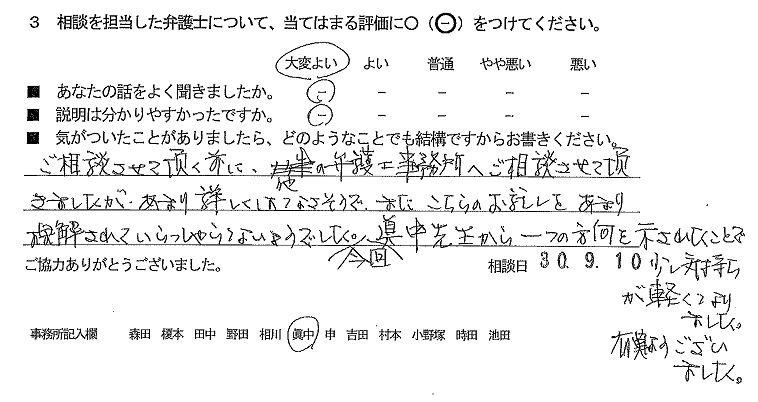 3 相談を担当した弁護士について、当てはまる評価に○（⊖）をつけてください。
大変よい よい 普通 やや悪い 悪い
■ あなたの話をよく聞きましたか。 － － － － －
■ 説明は分かりやすかったですか。 － － － － －
■ 気がついたことがありましたら、どのようなことでも結構ですからお書きください。
ご相談させて頂く前に、他の弁護士事務所へご相談させて頂
きましたが、あまり詳しくしれてなさそうで、またこちらのお話しをあまり
理解されていらっしゃらないようでした。今回 眞中先生から一つの方向を示されたことで
ご協力ありがとうございました。 相談日 30.9.10 少し気持ち
が軽くなり
ました。
有難うござい
ました。
事務所記入欄 森田 榎本 田中 野田 相川 眞中 申 吉田 村本 小野塚 時田 池田